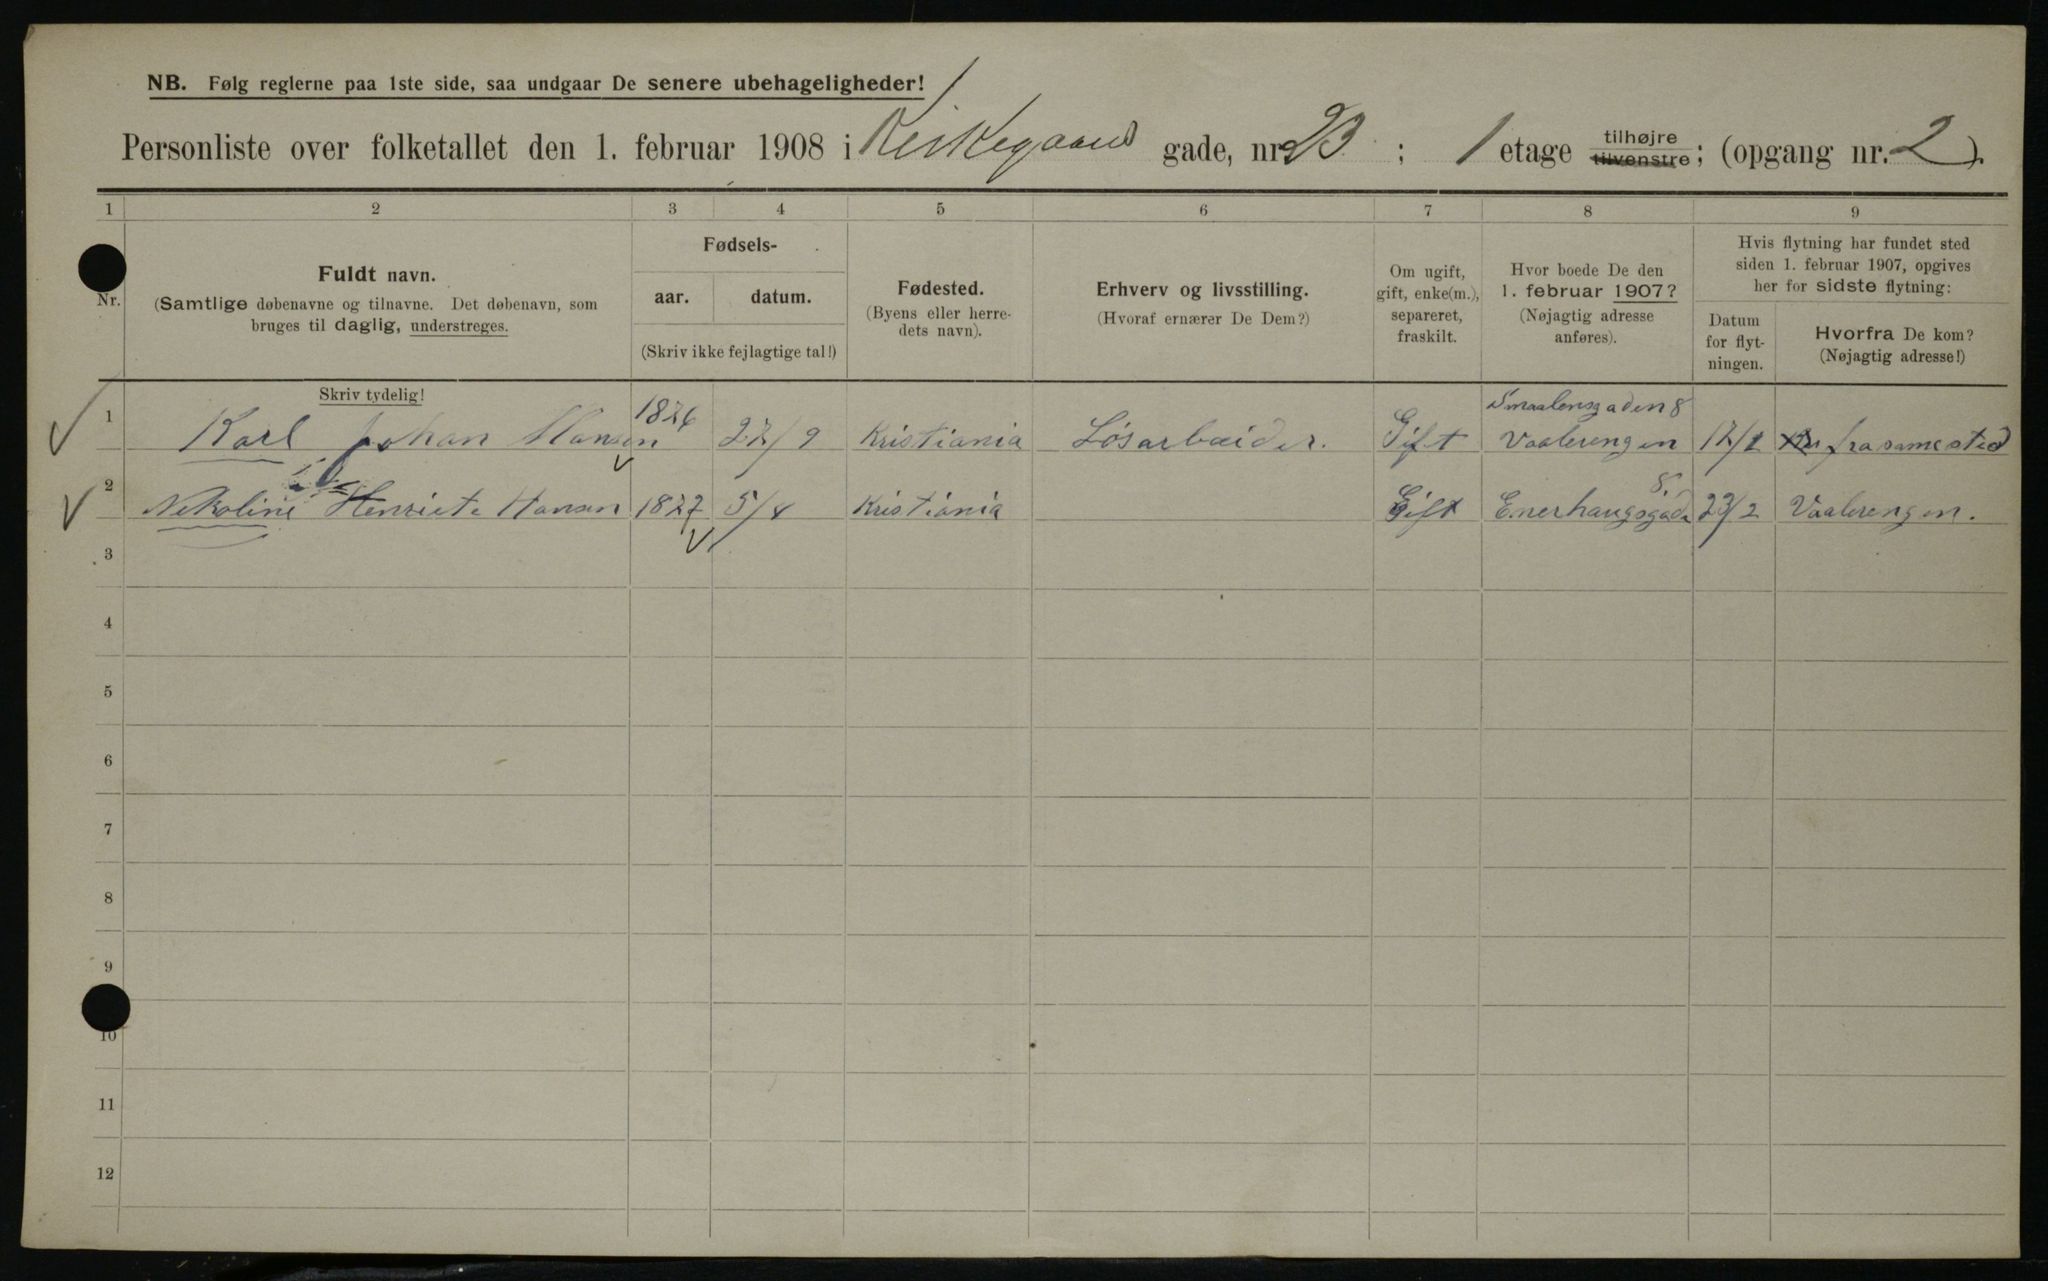 NB. Følg reglerne paa 1ste side, saa undgaar De senere ubehageligheder!
Personliste over folketallet den 1. februar 1908 i Kirkegaards gade, nr. 23 ; 1 etage tilhøjre tilvenstre; (opgang nr. 2).
1 2 3 4 5 6 7 8 9
Nr.
Fuldt navn.
(Samtlige døbenavne og tilnavne. Det døbenavn, som
bruges til daglig, understreges.
Skriv tydelig!
Fødsels-
aar. datum.
(Skriv ikke fejlagtige tal!)
Fødested.
(Byens eller herre-
dets navn).
Erhverv og livsstilling.
(Hvoraf ernærer De Dem?)
Om ugift,
gift, enke(m.),
separeret,
fraskilt.
Hvor boede De den
1. februar 1907?
(Nøjagtig adresse
anføres).
Hvis flytning har fundet sted
siden 1. februar 1907, opgives
her for sidste flytning:
Datum
for flyt-
ningen.
Hvorfra De kom?
(Nøjagtig adresse!)
1 Karl Johan Hansen 1876 27/9 Kristiania Løsarbeider. Gift Smaalensgaden 8
Vaalerengen 17/2 fra samested
2 Nikoline Henriete Hansen 1877 5/4 Kristiania Gift Enerhaugsgade 8 23/2 Vaalerengen.
3
4
5
6
7
8
9
10
11
12